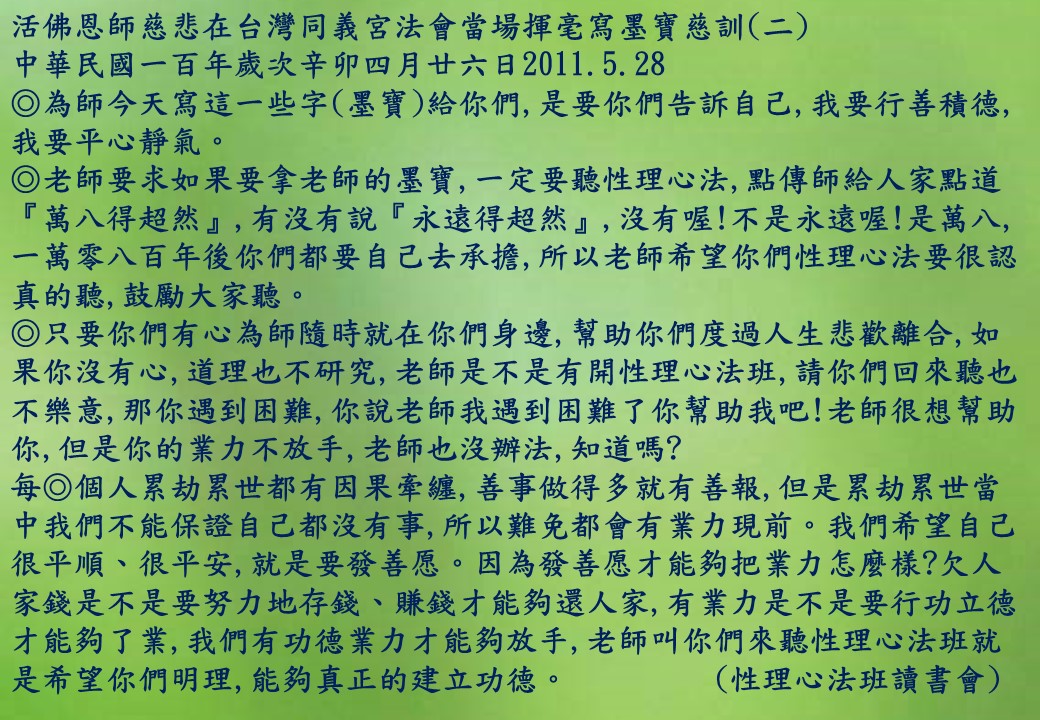 活佛恩師慈悲在台灣同義宮法會當場揮毫寫墨寶慈訓(二)
中華民國一百年歲次辛卯四月廿六日2011.5.28
◎為師今天寫這一些字(墨寶)給你們,是要你們告訴自己,我要行善積德,
我要平心靜氣。
◎老師要求如果要拿老師的墨寶,一定要聽性理心法,點傳師給人家點道
『萬八得超然』,有沒有說『永遠得超然』,沒有喔!不是永遠喔!是萬八,
一萬零八百年後你們都要自己去承擔,所以老師希望你們性理心法要很認
真的聽,鼓勵大家聽。
◎只要你們有心為師隨時就在你們身邊,幫助你們度過人生悲歡離合,如
果你沒有心,道理也不研究,老師是不是有開性理心法班,請你們回來聽也
不樂意,那你遇到困難,你說老師我遇到困難了你幫助我吧!老師很想幫助
你,但是你的業力不放手,老師也沒辦法,知道嗎?
每◎個人累劫累世都有因果牽纏,善事做得多就有善報,但是累劫累世當
中我們不能保證自己都沒有事,所以難免都會有業力現前。我們希望自己
很平順、很平安,就是要發善愿。因為發善愿才能夠把業力怎麼樣?欠人
家錢是不是要努力地存錢、賺錢才能夠還人家,有業力是不是要行功立德
才能夠了業,我們有功德業力才能夠放手,老師叫你們來聽性理心法班就
是希望你們明理,能夠真正的建立功德。 (性理心法班讀書會)